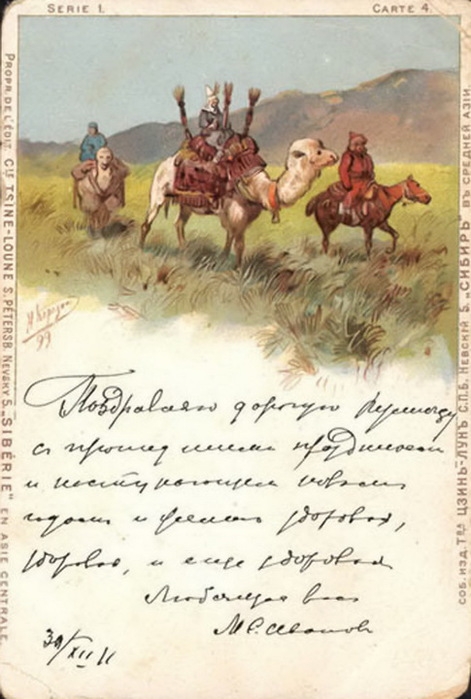 SERIE 1.
CARTE 4.
PROPR. DE L'ÉDIT. Cie TSINE-LOUNE S. PÉTERSB. NEVSKY 5. "SIBÉRIE" EN ASIE CENTRALE.
СОБ. ИЗД. Тва ЦЗИНЪ-ЛУНЪ С.П.Б. НЕВСКІЙ 5. "СИБИРЬ" ВЪ СРЕДНЕЙ АЗІИ.
Н Каразин
99
Поздравляю дорогую
с прошедшими праздниками
и наступающим новым
годом и желаю здоровья,
здоровья, и еще здоровья
Любящая вас
М. Иванова
30/XII 11